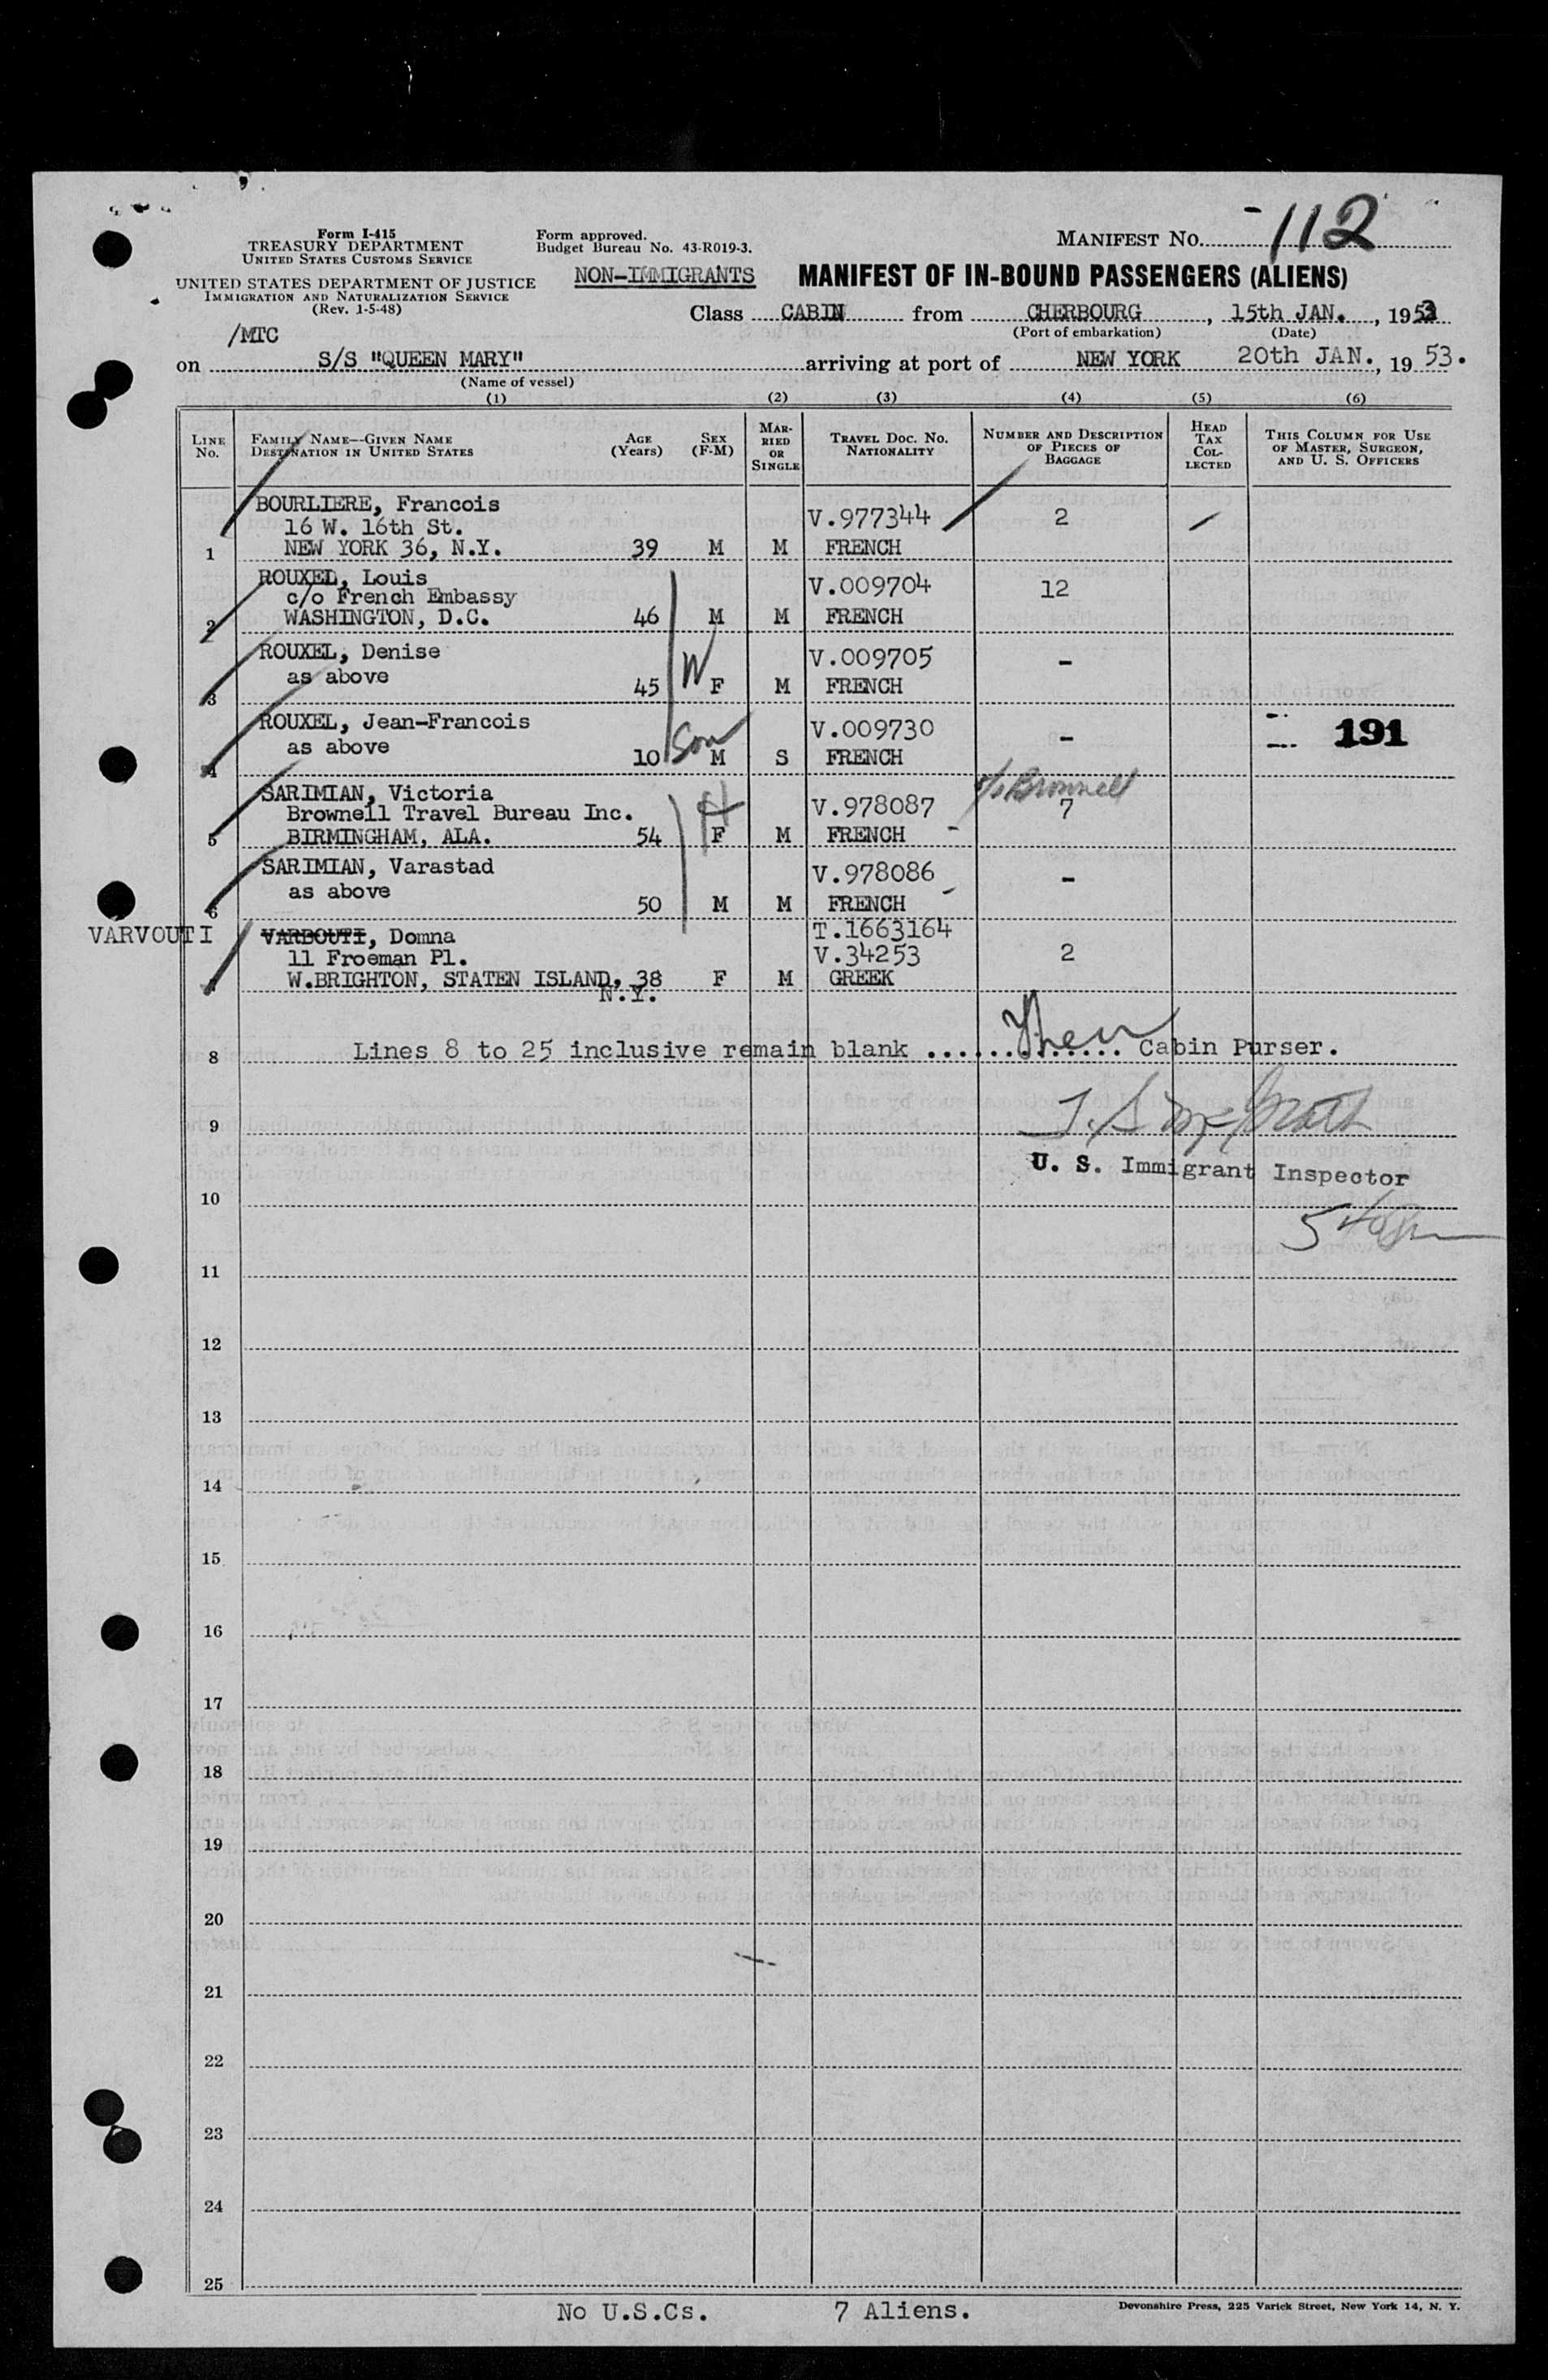 Form I-415
TREASURY DEPARTMENT
UNITED STATES CUSTOMS SERVICE
UNITED STATES DEPARTMENT OF JUSTICE
IMMIGRATION AND NATURALIZATION SERVICE
(Rev. 1-5-48)
Form approved.
Budget Bureau No. 43-R019-3.
MANIFEST NO. 112
NON-IMMIGRANTS MANIFEST OF IN-BOUND PASSENGERS (ALIENS)
Class CABIN from CHERBOURG, 15th JAN., 1953
(Port of embarkation) (Date)
/MTC
on S/S "QUEEN MARY" arriving at port of NEW YORK 20th JAN., 1953.
(Name of vessel)
(1) (2) (3) (4) (5) (6)
LINE NO. FAMILY NAME—GIVEN NAME DESTINATION IN UNITED STATES AGE (Years) SEX (F-M) MARRIED OR SINGLE TRAVEL DOC. NO. NATIONALITY NUMBER AND DESCRIPTION OF PIECES OF BAGGAGE HEAD TAX COLLECTED THIS COLUMN FOR USE OF MASTER, SURGEON, AND U. S. OFFICERS
BOURLIERE, Francois
16 W. 16th St. V.977344 2
1 NEW YORK 36, N.Y. 39 M M FRENCH
ROUXEL, Louis
c/o French Embassy V.009704 12
2 WASHINGTON, D.C. 46 M M FRENCH
ROUXEL, Denise V.009705 -
as above W
3 45 F M FRENCH
ROUXEL, Jean-Francois V.009730 - 191
as above Son
4 10 M S FRENCH
SARIMIAN, Victoria c/o Brownell
Brownell Travel Bureau Inc. H V.978087 7
5 BIRMINGHAM, ALA. 54 F M FRENCH -
SARIMIAN, Varastad V.978086 -
as above
6 50 M M FRENCH
VARVOUTI VARBOUTI, Domna T.1663164
11 Froeman Pl. V.34253 2
W.BRIGHTON, STATEN ISLAND, 38 F M GREEK
N.Y.
8 Lines 8 to 25 inclusive remain blank .............. Cabin Purser.
9
U. S. Immigrant Inspector
10
11
12
13
14
15
16
17
18
19
20
21
22
23
24
25
No U.S.Cs. 7 Aliens.
Devonshire Press, 225 Varick Street, New York 14, N. Y.